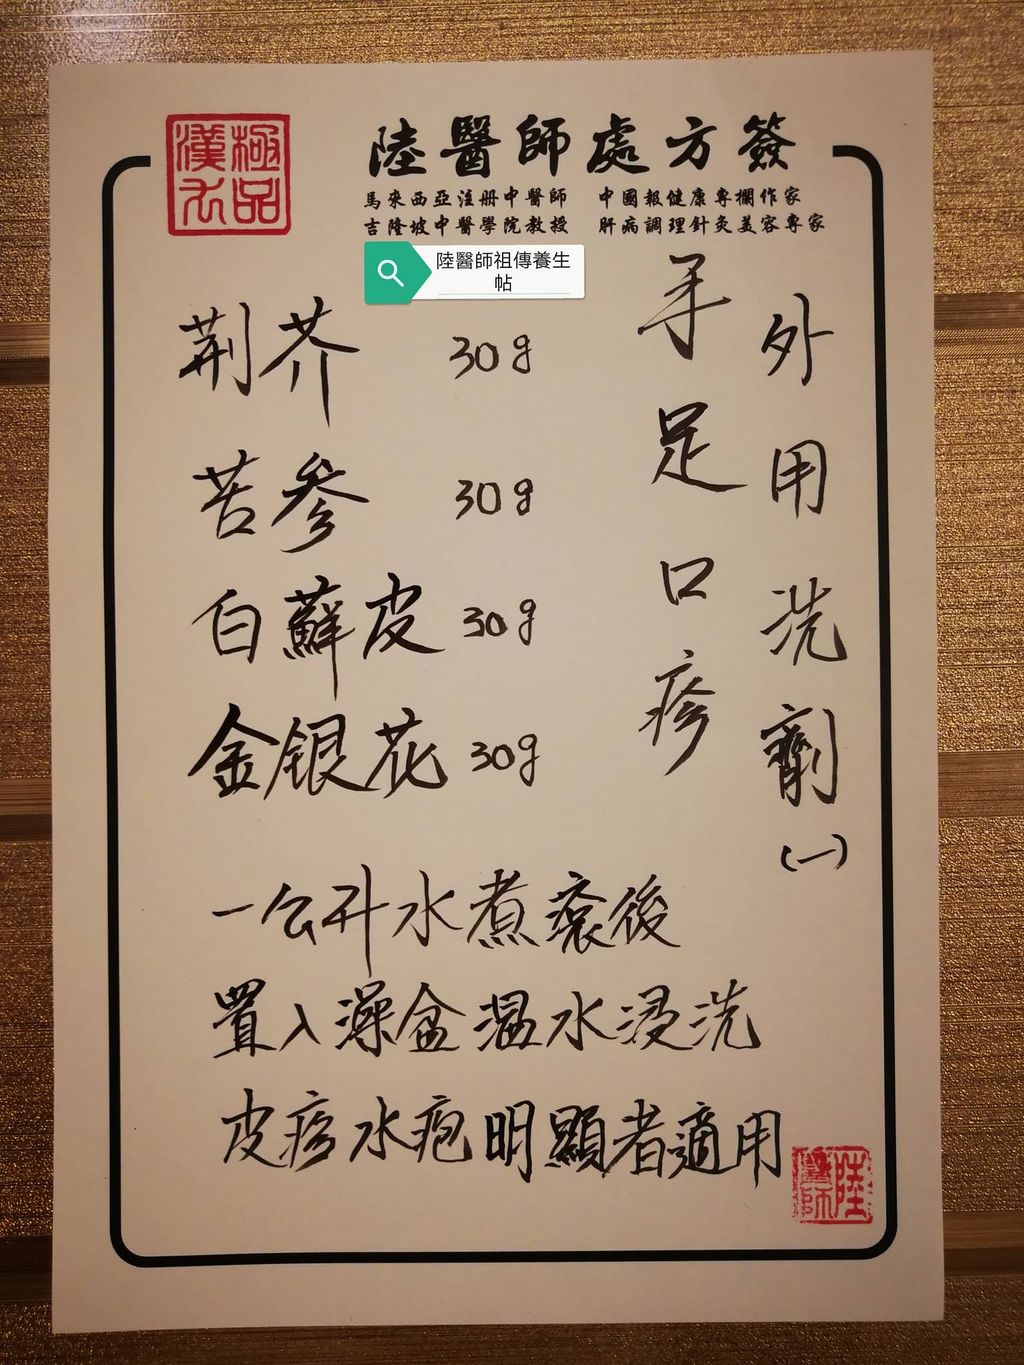 極品
漢方
陸醫師處方簽
馬來西亞注册中醫師 中國報健康專欄作家
吉隆坡中醫學院教授 肝病調理針灸美容專家
陸醫師祖傳養生
帖
外用洗劑(一)
手足口疹
荆芥 30g
苦參 30g
白蘚皮 30g
金銀花 30g
一公升水煮滾後
置入澡盆溫水浸洗
皮疹水疱明顯者適用
陸醫師